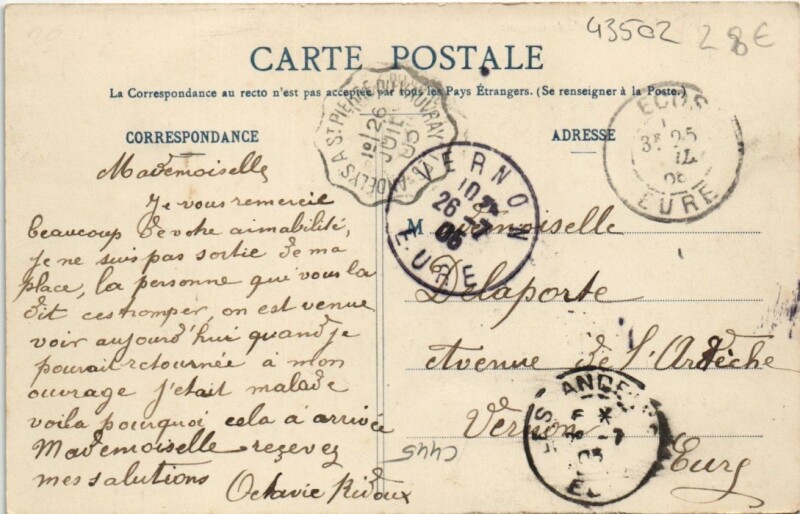 43502 28€
CARTE POSTALE
La Correspondance au recto n'est pas acceptée par tous les Pays Étrangers. (Se renseigner à la Poste.)
CORRESPONDANCE
ADRESSE
Mademoiselle
Je vous remercie
beaucoup de votre aimabilité,
Je ne suis pas sortie de ma
place, la personne qui vous la
dit ces tromper, on est venue
voir aujourd'hui quand je
pourai retournée à mon
ouvrage j'était malade
voila pourquoi cela à arrivée
Mademoiselle reçevez
mes salutions
Octavie Ridoux
Mademoiselle
Delaporte
Avenue de l'Ardèche
Vernon
Eure
C445
ANDELYS A ST PIERRE DU VAUVRAY
1º 26
JUIL
05
VERNON
26 -7
05
EURE
ECOS
3E 25
EURE
LES ANDELYS
-7
05